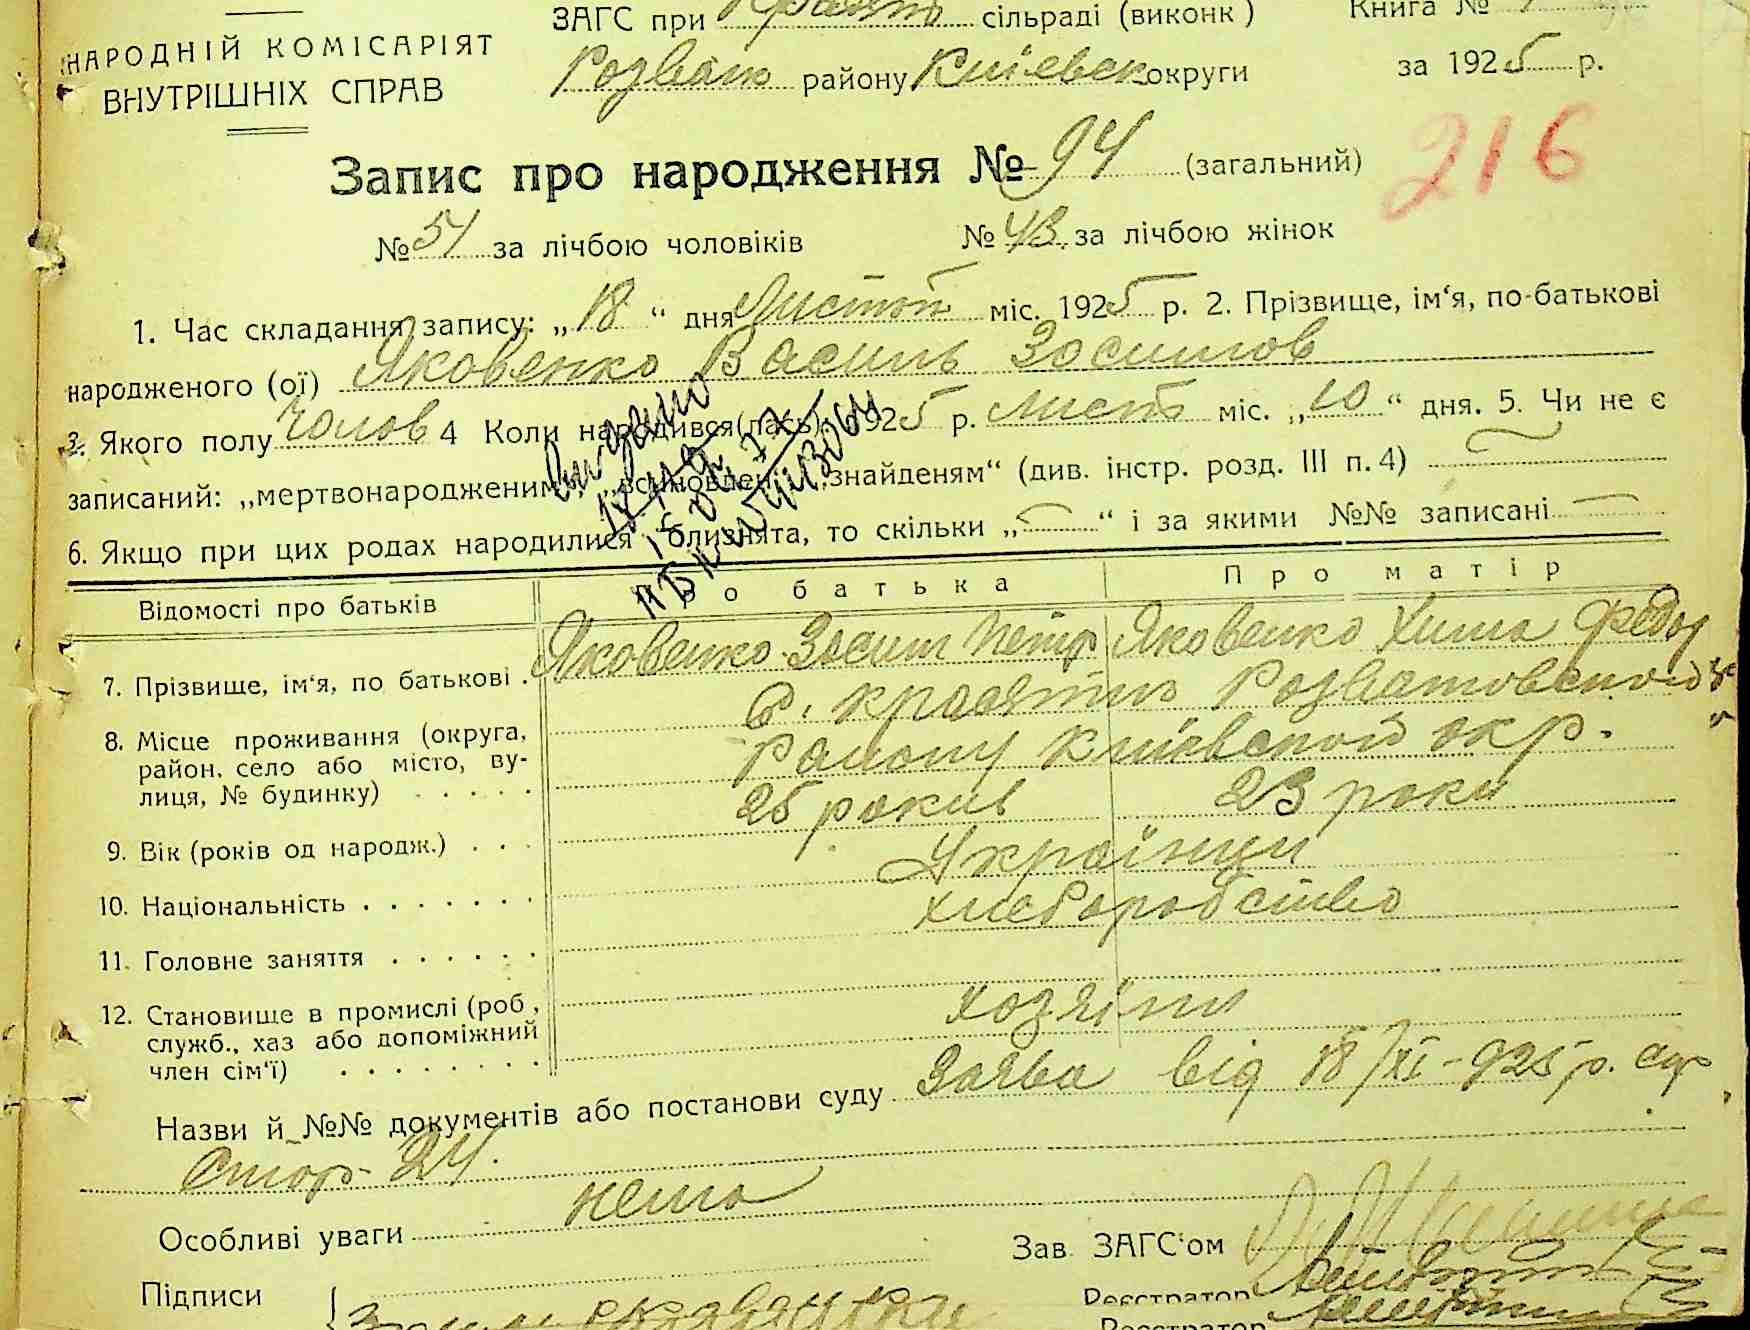 ЗАГС при Краятъ сільраді (виконк) Книга №
НАРОДНІЙ КОМІСАРІЯТ
ВНУТРІШНІХ СПРАВ
Розваж району Київськ округи за 1925 р.
Запис про народження № 94 (загальний) 216
№ 51 за лічбою чоловіків № 43 за лічбою жінок
1. Час складання запису: „18“ дня Листоп міс. 1925 р. 2. Прізвище, ім'я, по-батькові
народженого (ої) Яковенко Василь Зосимов
3. Якого полу Чолов 4 Коли народився(лась): 1925 р. Лист міс. „10“ дня. 5. Чи не є
записаний: „мертвонародженим“, „знайденям“ (див. інстр. розд. III п. 4)
6. Якщо при цих родах народилися близнята, то скільки „—“ і за якими №№ записані —
видано
Відомості про батьків Про батька Про матір
7. Прізвище, ім'я, по батькові . Яковенко Зосим Петр Яковенко Хима Федор
8. Місце проживання (округа, район, село або місто, ву-
лиця, № будинку) . . . . .
С. Краятъ Розважовской
Району Київской окр.
9. Вік (років од народж.) . . . 25 років 23 роки
10. Національність . . . . . . . Українци
11. Головне заняття . . . . . . хлеборобство
12. Становище в промислі (роб,
служб., хаз або допоміжний
член сім'ї) . . . . . . . .
хозяіни
Назви й №№ документів або постанови суду Заява від 18/XI-925 р.
Стор- 24.
Особливі уваги нема
Зав ЗАГС'ом
Підписи
Реєстратор
Реєстратор